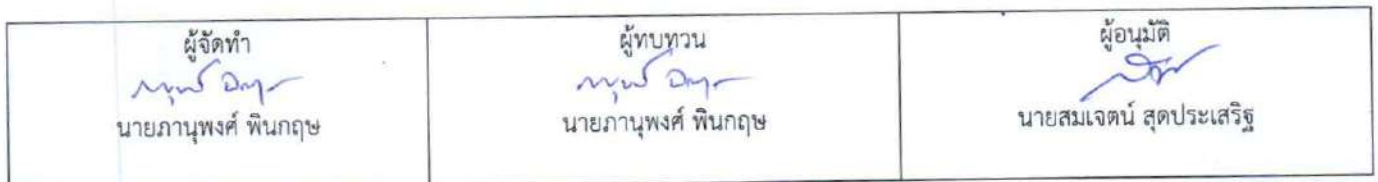 ผู้จัดทำ
นายภานุพงศ์ พินกฤษ
ผู้ทบทวน
นายภานุพงศ์ พินกฤษ
ผู้อนุมัติ
นายสมเจตน์ สุดประเสริฐ